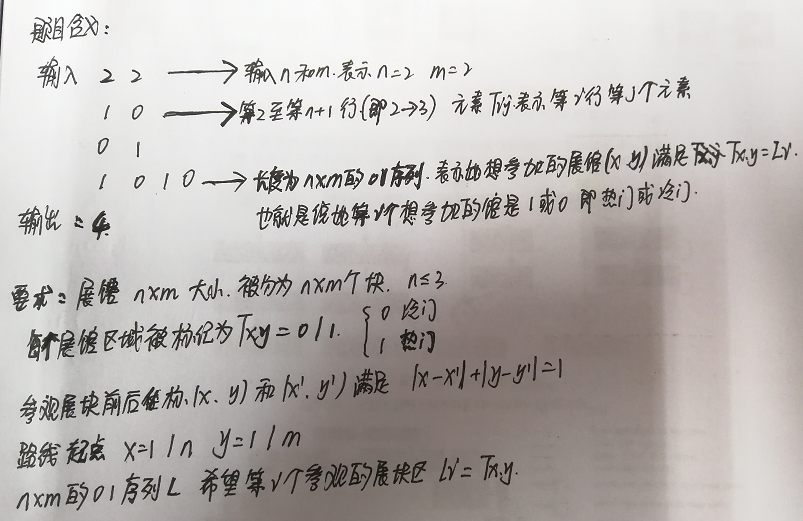 题目含义:
输入 2 2 → 输入n和m.表示n=2 m=2
1 0 → 第2至第n+1行(即2→3) 元素Tij表示第i行第j个元素
0 1
1 0 1 0 → 长度为n×m的01序列.表示她想参加的展馆(x,y)满足 Tx.y=Li.
也就是说她第i个想参加的馆是1或0 即热门或冷门.
输出:4.
要求:展馆n×m大小.被分为n×m个块. n≤3.
每个展馆区域被标记为Txy=0/1. { 0 冷门
1 热门
参观展块前后坐标(x.y)和(x',y')满足 |x-x'|+|y-y'|=1
路线起点 x=1/n y=1/m
n×m的01序列L 希望第i个参观的展块区 Li=Tx.y.